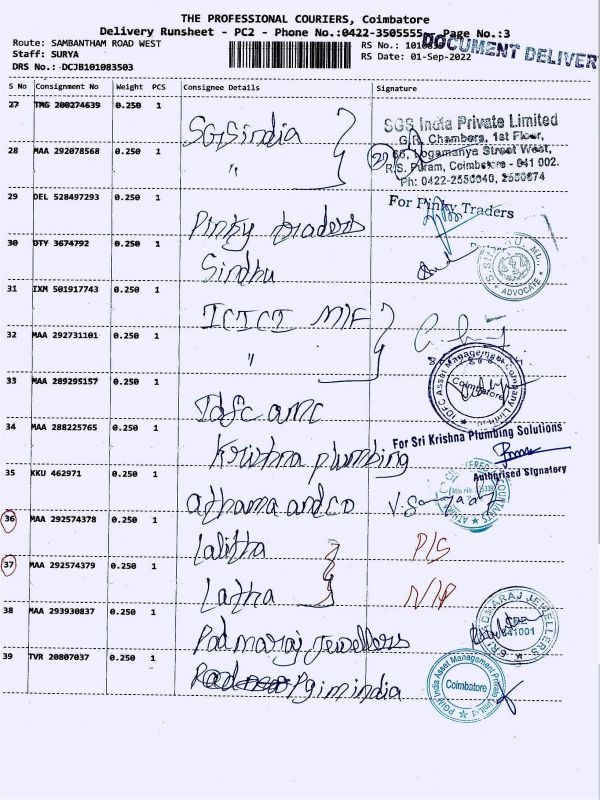 THE PROFESSIONAL COURIERS, Coimbatore
Delivery Runsheet - PC2 - Phone No.:0422-3505555 Page No.:3
Route: SAMBANTHAM ROAD WEST
RS No.:
DOCUMENT DELIVER
Staff: SURYA
RS Date: 01-Sep-2022
DRS No.: DCJB101083503
S No Consignment No Weight PCS Consignee Details Signature
27 TMG 200274639 0.250 1 SGS india
SGS India Private Limited
G.R. Chambers, 1st Floor,
28 MAA 292078568 0.250 1 "
66, Logamanya Street West,
R.S. Puram, Coimbatore - 641 002.
Ph: 0422-2550040, 2550074
29 DEL 528497293 0.250 1 Pinky traders
For Pinky Traders
30 DTY 3674792 0.250 1 Sindhu
ADVOCATE
31 IXM 501917743 0.250 1 ICICI M/F
32 MAA 292731101 0.250 1 "
IDFC Asset Management Company Limited
Coimbatore
33 MAA 289295157 0.250 1 Idfc amc
34 MAA 288225765 0.250 1 Krishna plumbing
For Sri Krishna Plumbing Solutions
Authorised Signatory
35 KKU 462971 0.250 1 athama and co
36 MAA 292574378 0.250 1 Lalitha P/S
37 MAA 292574379 0.250 1 Latha N/P
38 MAA 293930837 0.250 1 Padmaraj Jewellers
SRI PADMARAJ JEWELLERS
641001
39 TVR 20807037 0.250 1 Pgim india
PGIM India Asset Management Private Limited
Coimbatore